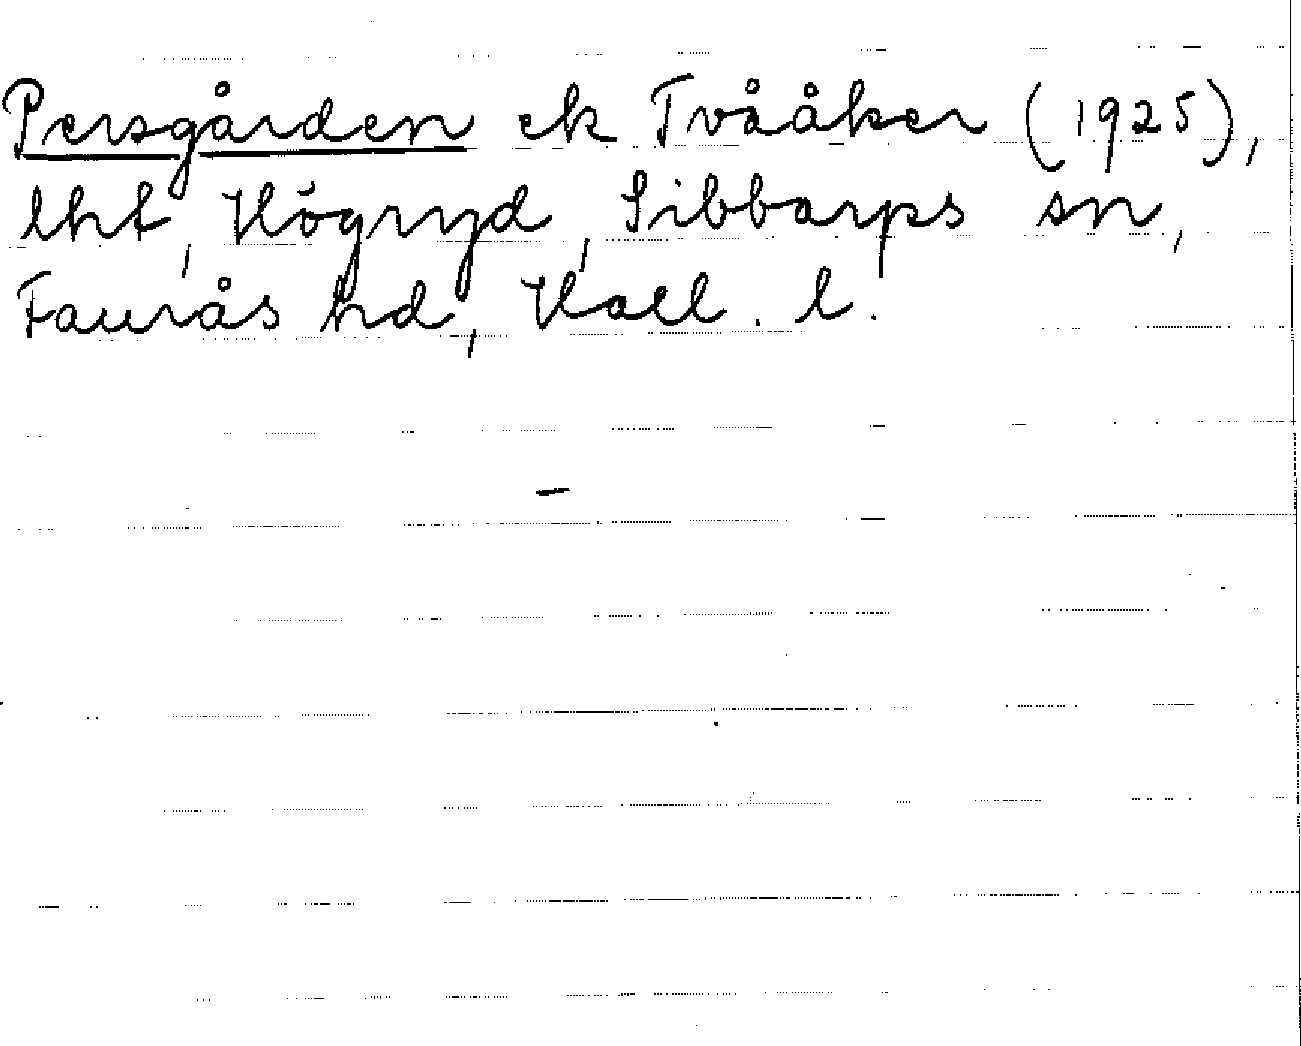 Persgården ek Tvååker (1925),
lht, Högryd, Sibbarps sn,
Faurås hd, Hall. l.